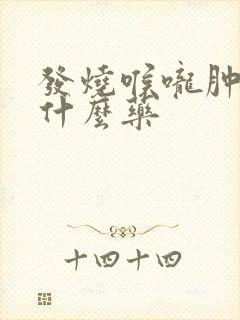 發燒喉嚨肿
什麼藥
十四十四